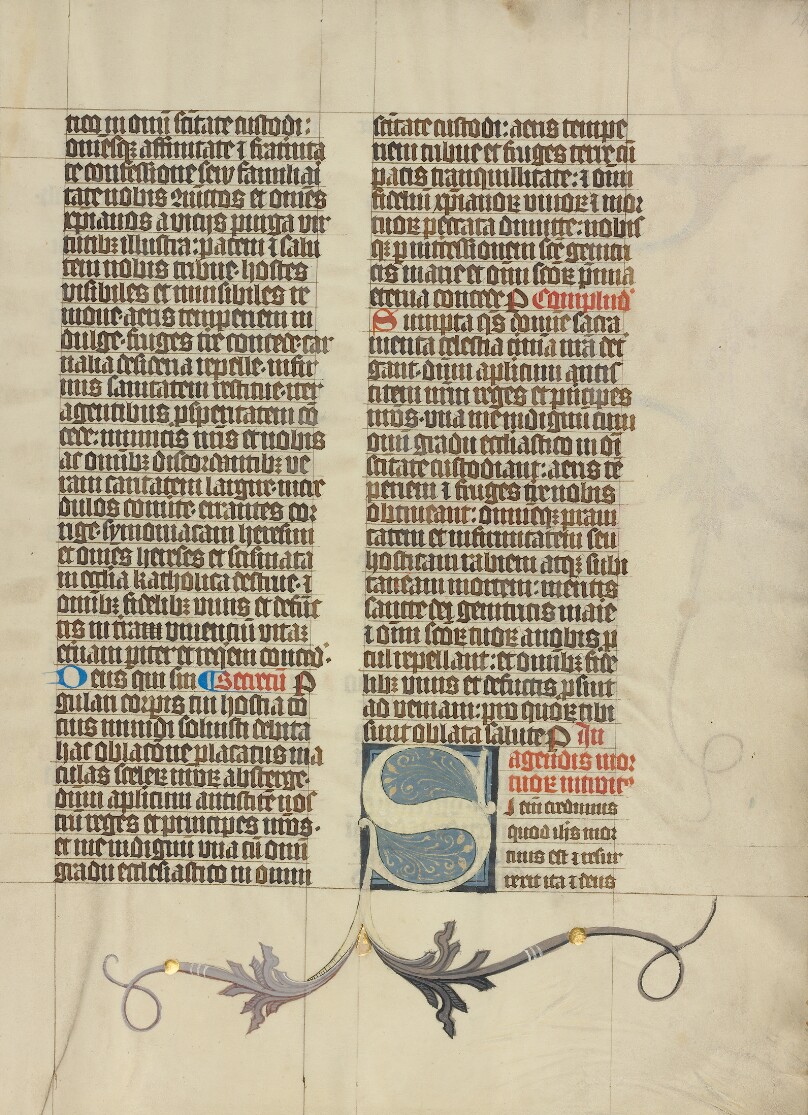 tico in omni sctitate custodi:
omesq; affinitate ⁊ fraternita
te confessione seu familiai
tate nobis iunctos et omes
xpianos a vicijs purga vir
tutibꝫ illustra: pacem ⁊ salu
tem nobis tribue· hostes
visibiles et inuisibiles re
moue· aeris tempperiem in
dulge· fruges tre concede· car
nalia desideria repelle· infir
mis sanitatem restitue· iter
agentibus ꝓsperitatem co
cede· inimicis nris et nobis
ac omibꝫ discordantibꝫ ve
ram caritatem largire· incre
dulos conuerte· errantes cor
rige· symoniacam heresim
et omes hereses et scismata
in ecclia katholica destrue· ⁊
omibꝫ fidelibꝫ viuis et defuc
tis in tram viuenciu vitaꝫ
eternam pariter et requiem concede·
Deus qui sin Secretu P
gulari corpis tui hostia to
cius mundi soluisti debita
hac oblatoe placatus ma
culas sceleꝝ nroꝝ absterge·
dum aplicum antistite nos
tru reges et principes nros·
et me indignu vna cu omi
gradu ecclesiastico in omni
sctitate custodi: aeris tempe
riem tribue et fruges terre cu
pacis tranquillitate: ⁊ omi
fidelm xpianoꝝ viuoꝝ ⁊ mor
tuoꝝ peccata dimitte: nobis
qꝫ p intercessionem sce genitri
cis marie et omi scoꝝ premia
eterna concede P Complend
Sumpta qs domine sacra
menta celestia crimina nra det
gant· dum aplicum antis
titem nrm reges et principes
nros· vna me indignum cum
omi gradu ecclesiastico in oi
sctitate custodiant: aeris te
periem ⁊ fruges tre nobis
obtineant: omnemqꝫ praui
tatem et infirmitatem seu
hosticam rabiem atqꝫ subi
taneam mortem: meritis
sancte dei genitricis marie
⁊ omi scoꝝ tuoꝝ a nobis p
cul repellant: et omibꝫ fide
libꝫ viuis et defuctis ꝓsint
ad veniam: pro quoꝝ tibi
sunt oblata salute P In
agendis mor
tuoꝝ introit
Si eni credimus
quod ihs mor
tuus est ⁊ resur
rexit ita ⁊ deus